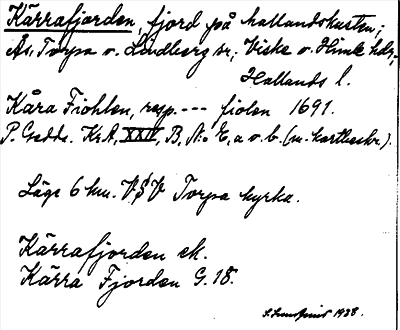 Kärrafjorden, fjord på hallandskusten;
Ås, Torpa o. Lindberg sr; Viske o. Himle hdr,
Hallands l.
Kåra Fiohlen, resp. --- fiolen 1691.
P. Gedda. Kr.A, XXIV, B. N:o E, a o. b. (m. kartbeskr.).
Läge 6 km. V § V Torpa kyrka.
Kärrafjorden ek.
Kärra Fjorden G. 18.
1928.